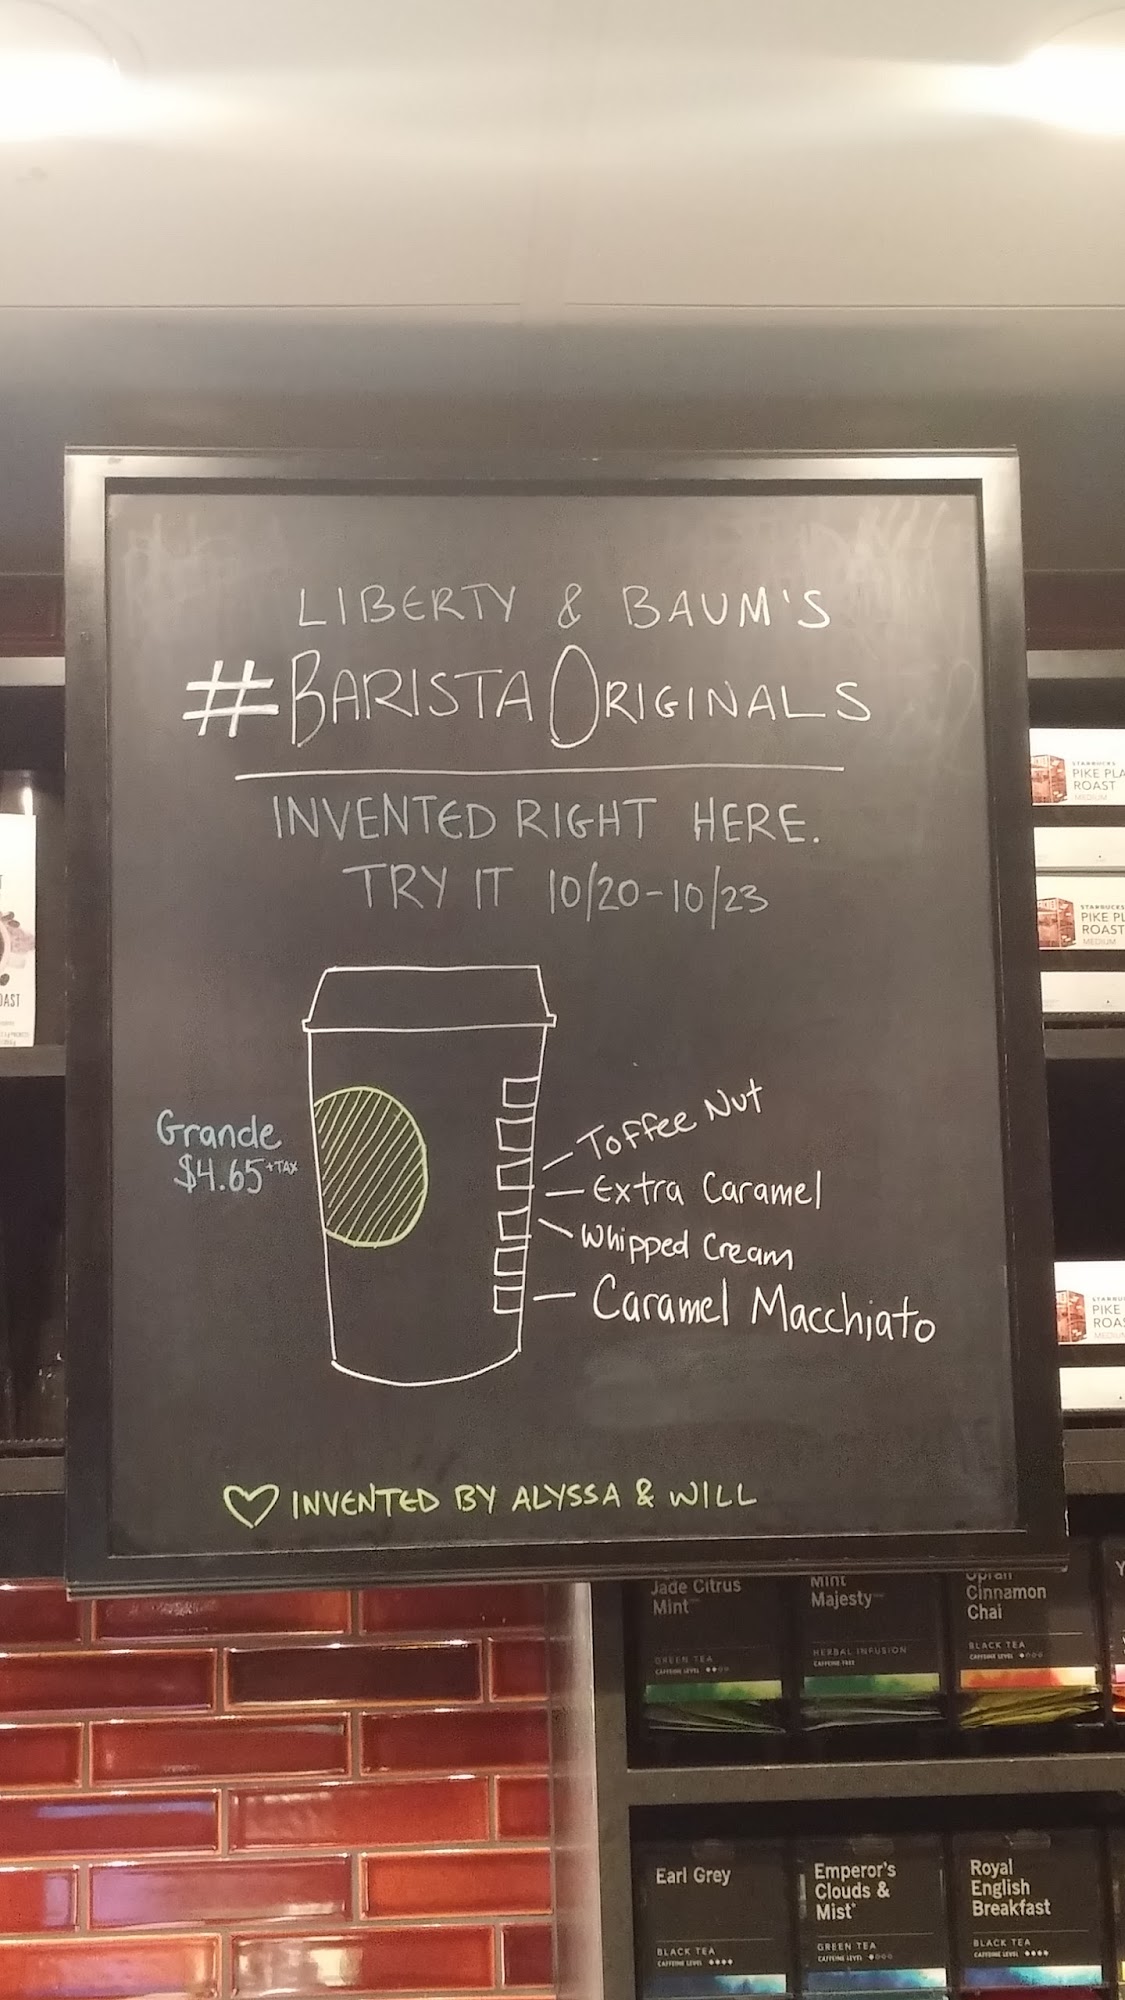 LIBERTY & BAUM'S
#BARISTAORIGINALS
INVENTED RIGHT HERE.
TRY IT 10/20-10/23
Grande
$4.65 +TAX
Toffee Nut
Extra Caramel
Whipped Cream
Caramel Macchiato
INVENTED BY ALYSSA & WILL
STARBUCKS
PIKE PLA
ROAST
MEDIUM
STARBUCKS
PIKE PL
ROAST
MEDIUM
PIKE
ROAS
MEDIUM
Jade Citrus
Mint
GREEN TEA
CAFFEINE LEVEL
Mint
Majesty
HERBAL INFUSION
CAFFEINE FREE
Oprah
Cinnamon
Chai
BLACK TEA
CAFFEINE LEVEL
Earl Grey
BLACK TEA
CAFFEINE LEVEL
Emperor's
Clouds &
Mist
GREEN TEA
CAFFEINE LEVEL
Royal
English
Breakfast
BLACK TEA
CAFFEINE LEVEL